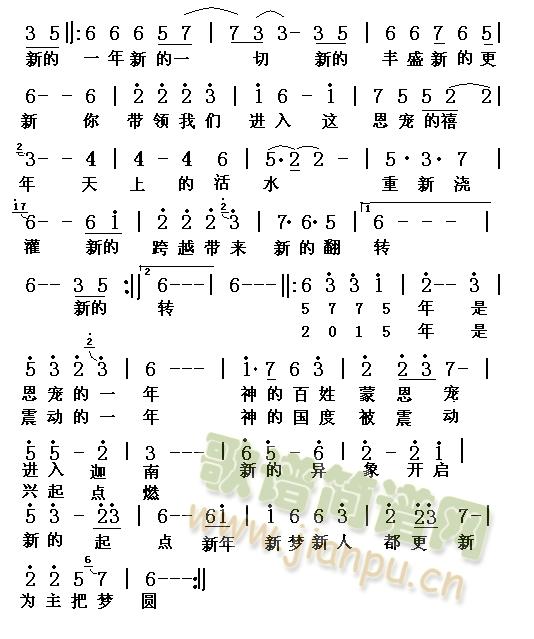 3 5 ||: 6 6 6 5 7 | 7 3 3- 3 5 | 6 6 7 6 5 |
新的 一年新的一 切 新的 丰盛新的更
6-- 6 | 2 2 2 3 | 1 6 - 1 | 7 5 5 2 2 |
新 你 带领我们 进入这 恩宠的禧
2 3-- 4 | 4-4 6 | 5·2 2 - | 5·3·7 |
年 天上的活水 重新浇
17 6-- 6 1 | 2 2 2 2 3 | 7·6·5 | 1 6 - -- |
灌 新的 跨越带来新的翻 转
6-- 3 5 :|| 2 6--- | 6--- ||: 6 3 3 1 | 2-- 3 |
新的 转 5 7 7 5 年 是
2 0 1 5 年 是
5 3 2 2 3 | 6 --- | 1·7 6 3 | 2 2 3 7- |
恩宠的一年 神的百姓蒙恩宠
震动的一年 神的国度被震动
5 5 - 2 | 3 --- | 6 5 - 6 | 2 - 2 1 |
进入迦南 新的异象开启
兴起点燃
5 3 - 23 | 5 -- 61 | 1 6 6 3 | 2 23 7- |
新的起点 新年 新梦新人都更新
2 2 5 6 7 | 6--- :||
为主把梦圆
歌谱简谱网
www.jianpu.cn